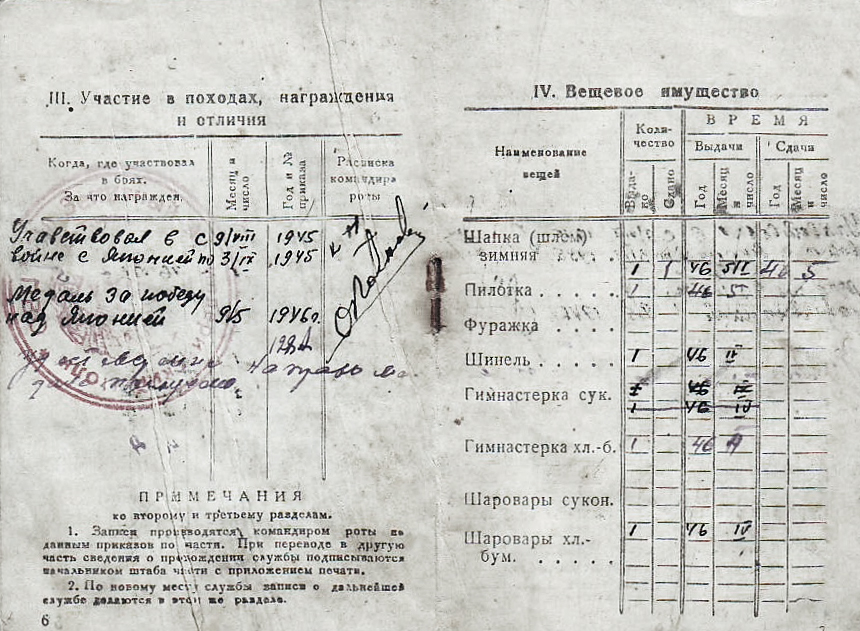 III. Участие в походах, награждения
и отличия
Когда, где участвовал
в боях.
За что награжден.
Месяц и
число
Год и №
приказа
Расписка
командира
роты
Участвовал в с 9/VIII 1945
войне с Японией по 3/IX 1945
Медаль за победу
над Японией 9/5 1946 г.
ПРИМЕЧАНИЯ
ко второму и третьему разделам.
1. Записи производятся командиром роты по
данным приказов по части. При переводе в другую
часть сведения о прохождении службы подписываются
начальником штаба части с приложением печати.
2. По новому месту службы записи о дальнейшей
службе делаются в этом же разделе.
6
IV. Вещевое имущество
Наименование
вещей
Коли-
чество
ВРЕМЯ
Выдачи
Сдачи
Выда-
но
Сдано
Год
Месяц
и
число
Год
Месяц
и
число
Шапка (шлем)
зимняя . . . 1 1 46
Пилотка . . . . . 46
Фуражка . . . . .
Шинель . . . . . 1 46 IV
Гимнастерка сук.
1 46 IV
Гимнастерка хл.-б. 1 46
Шаровары сукон.
Шаровары хл.- 1 46 IV
бум. . . . . .